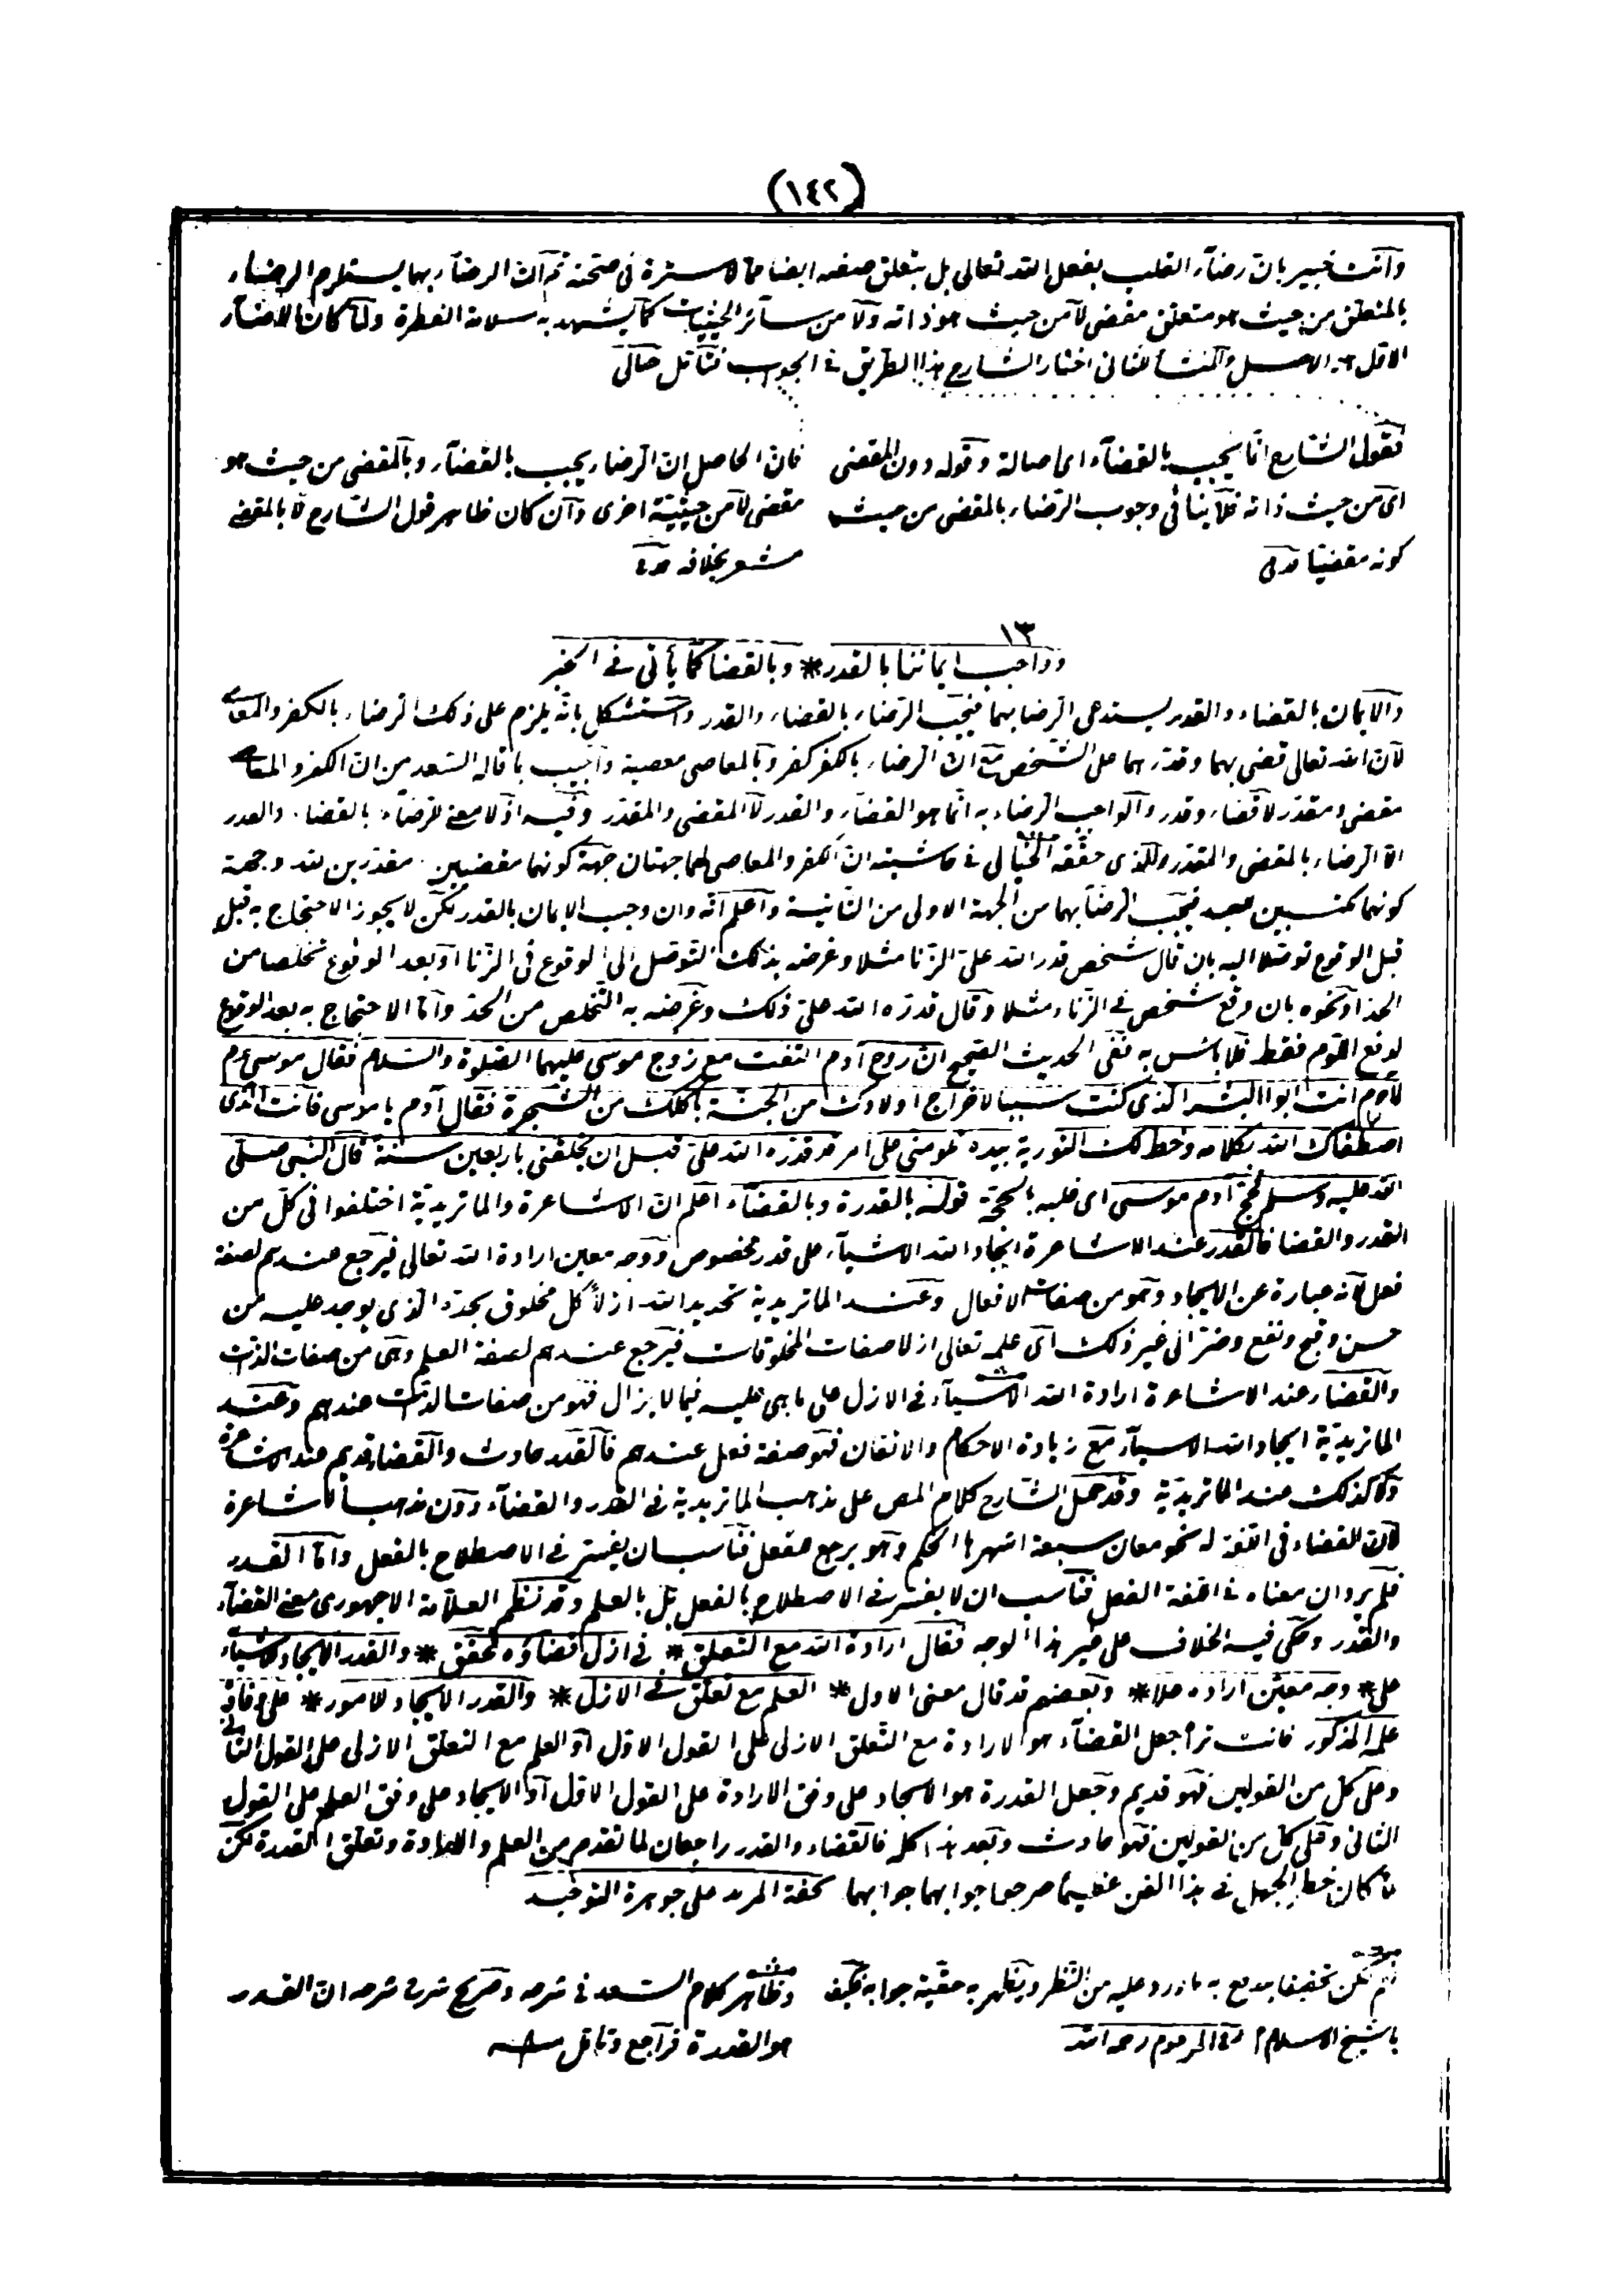 (١٤٢)
وانت خبير بان رضاء القلب بفعل الله تعالى بل بتعلق صفته ايضا مما لا سترة في صحته ثم ان الرضاء بهما يستلزم الرضاء
بالمتعلق من حيث هو متعلق مقضى لا من حيث هو ذاته ولا من سائر الحيثيات كما يشهد به سلامة الفطرة ولما كان الرضاء
الاول هو الاصل والمنشأ للثانى اختار الشارح هذا الطريق في الجواب فتأمل خيالى
فقول الشارح انما يجب بالقضاء اى اصالة وقوله دون المقضى
اى من حيث ذاته فلا ينافى وجوب الرضاء بالمقضى من حيث
كونه مقضيا
فان الحاصل ان الرضاء يجب بالقضاء وبالمقضى من حيث هو
مقضى لا من حيثية اخرى وان كان ظاهر قول الشارح لا بالمقضى
مشعر بخلافه
١٣
وواجب ايماننا بالقدر * وبالقضا كما يأتى في الخبر
والايمان بالقضاء والقدر يستدعى الرضا بهما فيجب الرضاء بالقضاء والقدر واستشكل بانه يلزم على ذلك الرضاء بالكفر والمعاصى
لان الله تعالى قضى بهما وقدرهما على الشخص مع ان الرضاء بالكفر كفر وبالمعاصى معصية واجيب بما قاله السعد من ان الكفر والمعاصى
مقضى ومقدر لا قضاء وقدر والواجب الرضاء به انما هو القضاء والقدر لا المقضى والمقدر وفيه اذ لا معنى للرضاء بالقضاء والقدر
الا الرضاء بالمقضى والمقدر والذى حققه الخيالى في حاشيته ان الكفر والمعاصى لهما جهتان جهة كونهما مقضيين مقدرين لله وجهة
كونهما مكتسبين للعبد فيجب الرضا بهما من الجهة الاولى من الثانية واعلم انه وان وجب الايمان بالقدر لكن لا يجوز الاحتجاج به قبل
قبل الوقوع توصلا اليه بان قال شخص قدر الله على الزنا مثلا وغرضه بذلك التوصل الى الوقوع في الزنا او بعد الوقوع تخلصا من
الحد او نحوه بان وقع شخص في الزناء مثلا وقال قدره الله على ذلك وغرضه به التخلص من الحد واما الاحتجاج به بعد الوقوع
لدفع اللوم فقط فلا بأس به ففى الحديث الصحيح ان روح آدم التقت مع روح موسى عليهما الصلوة والسلام فقال موسى
لآدم انت ابو البشر الذى كنت سببا لاخراج اولادك من الجنة باكلك من الشجرة فقال آدم يا موسى فانت الذى
اصطفاك الله بكلامه وخط لك التورية بيده تلومنى على امر قد قدره الله على قبل ان يخلقنى باربعين سنة قال النبى صلى
الله عليه وسلم فحج آدم موسى اى غلبه بالحجة قوله بالقدرة وبالقضاء اعلم ان الاشاعرة والماتريدية اختلفوا في كل من
القدر والقضا فالقدر عند الاشاعرة ايجاد الله الاشياء على قدر مخصوص ووجه معين اراده الله تعالى فيرجع عندهم لصفة
فعل لانه عبارة عن الايجاد وهو من صفات الافعال وعند الماتريدية تحديد الله ازلا كل مخلوق بحده الذى يوجد عليه من
حسن وقبح ونفع وضر الى غير ذلك اى علمه تعالى ازلا صفات المخلوقات فيرجع عندهم لصفة العلم وهى من صفات الذات
والقضاء عند الاشاعرة ارادة الله الاشياء في الازل على ما هى عليه فيما لا يزال فهو من صفات الذات عندهم وعند
الماتريدية ايجاد الله الاشياء مع زيادة الاحكام والاتقان فهو صفة فعل عندهم فالقدر حادث والقضاء قديم عند الاشاعرة
ولا كذلك عند الماتريدية وقد حمل الشارح كلام المص على مذهب الماتريدية في القدر والقضاء دون مذهب الاشاعرة
لان للقضاء في اللغة له نحو معان سبعة اشهرها الحكم وهو يرجع للفعل فناسب ان يفسر في الاصطلاح بالفعل واما القدر
فلم يرد ان معناه في اللغة الفعل فناسب ان لا يفسر في الاصطلاح بالفعل بل بالعلم وقد نظم العلامة الاجهورى معنى القضاء
والقدر وحكى فيه الخلاف على غير هذا الوجه فقال ارادة الله مع التعلق * في ازل قضاؤه فحقق * والقدر الايجاد للاشياء
على * وجه معين اراده علا * وبعضهم قد قال معنى الاول * العلم مع تعلق في الازل * والقدر الايجاد للامور * على وفاق
علمه المذكور فانت تراه جعل القضاء هو الارادة مع التعلق الازلى على القول الاول او العلم مع التعلق الازلى على القول الثانى
وعلى كل من القولين فهو قديم وجعل القدرة هو الايجاد على وفق الارادة على القول الاول او الايجاد على وفق العلم على القول
الثانى وعلى كل من القولين فهو حادث وبعد هذا كله فالقضاء والقدر راجعان لما تقدم من العلم والارادة وتعلق القدرة لكن
لما كان خطر الجهل في هذا الفن عظيما صرحوا بهما تحفة المريد على جوهرة التوحيد
من النظر ويظهر به حقية جوابه فكيف
يا شيخ الاسلام المرحوم رحمه الله
وظاهر كلام السعد في شرحه وصريح شرح شرحه ان القدر
هو القدرة فراجع وتأمل